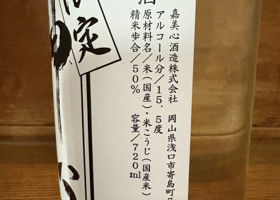 限定
酒
嘉美心酒造株式会社 岡山県浅口市寄島町
アルコール分/15.5度
原材料名/米(国産)・米こうじ(国産米)
精米歩合/50% 容量/720ml